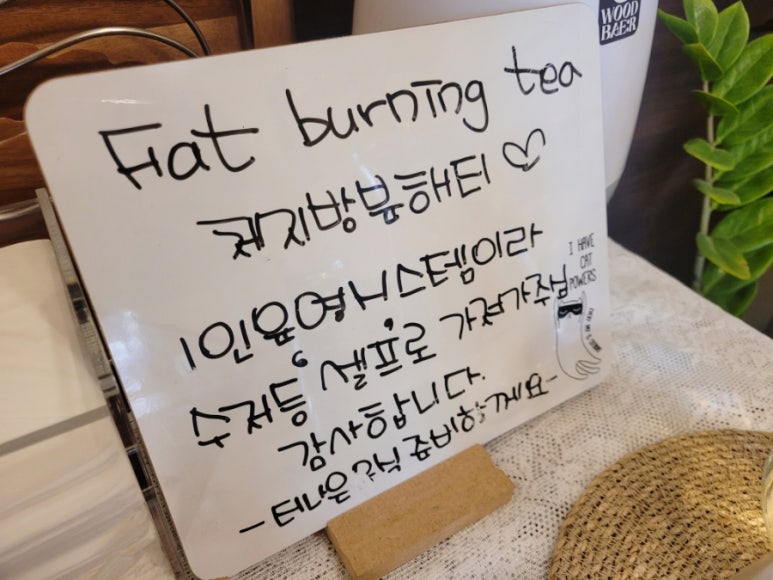 Fat burning tea
체지방분해티 ♡
1인운영시스템이라
수저등, 셀프로 가져가주심
감사합니다.
- 더나은 간식 준비할게요 -
WOOD
BAER
I HAVE
CAT
POWERS